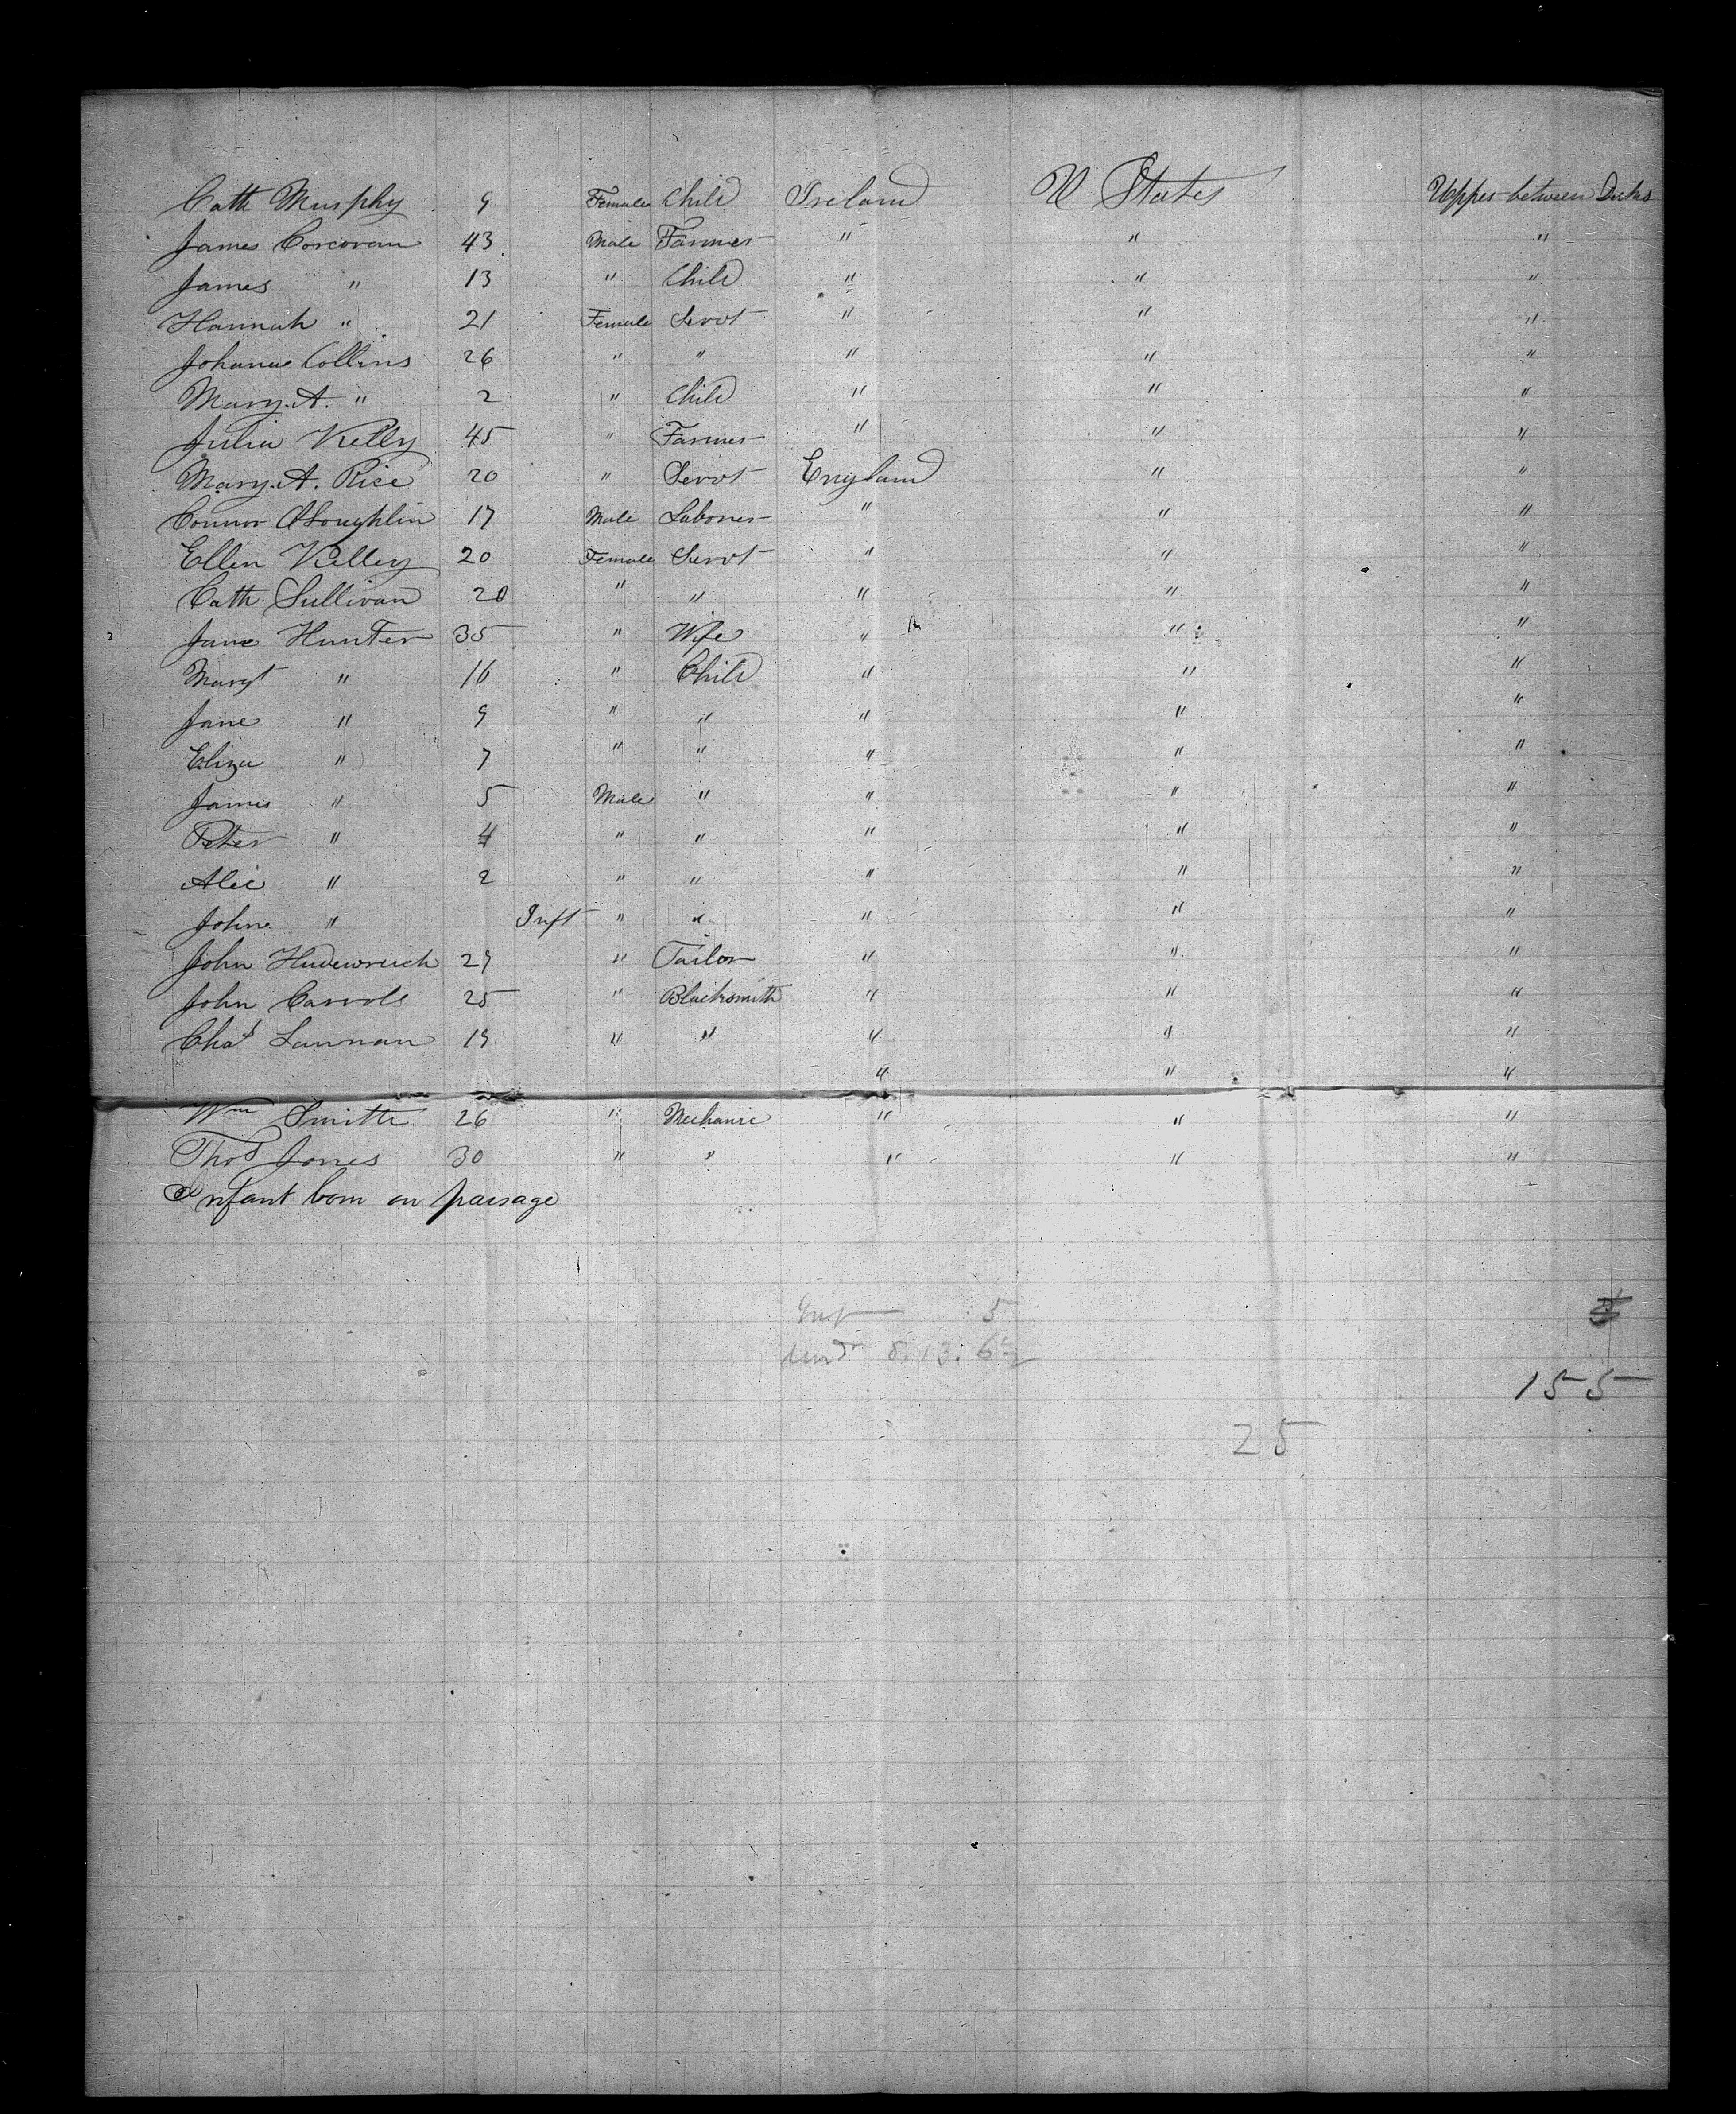 Cath Murphy 9 Female Child Ireland U States Upper between Decks
James Corcoran 43 Male Farmer " " "
James " 13 " Child " " "
Hannah " 21 Female Servt " " "
Johana Collins 26 " " " " "
Mary. A. " 2 " Child " " "
Julia Kelly 45 " Farmer " " "
Mary. A. Rice 20 " Servt England " "
Connor O'Loughlin 17 Male Laborer " " "
Ellen Kelley 20 Female Servt " " "
Cath Sullivan 20 " " " " "
Jane Hunter 35 " Wife " " "
Margt " 16 " Child " " "
Jane " 9 " " " " "
Eliza " 7 " " " " "
James " 5 Male " " " "
Peter " 4 " " " " "
Alic " 2 " " " " "
John " Inft " " " " "
John 29 " Tailor " " "
John Carroll 25 " Blacksmith " " "
Chas Lannan 19 " " " " "
" " "
Wm Smith 26 " Mechanic " " "
Thos Jones 30 " " " " "
Infant born on passage
Inf 5
und 8.13.
155
25